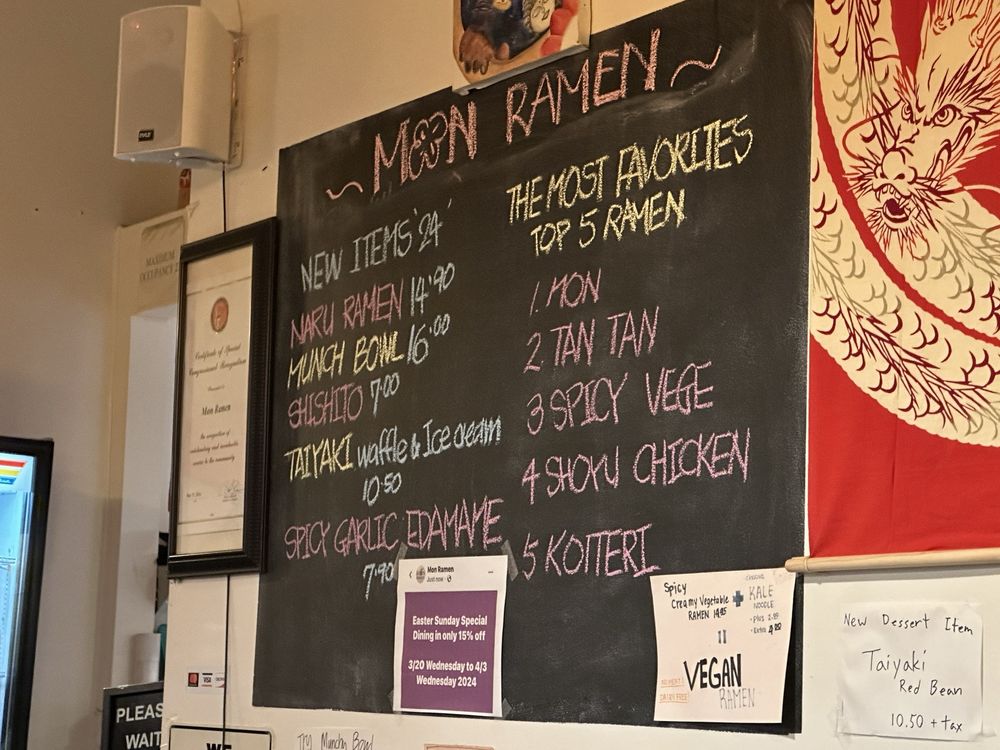 MOON RAMEN
NEW ITEMS '24'
NARU RAMEN 14.90
MUNCH BOWL 16.00
SHISHITO 7.00
TAIYAKI waffle & Ice cream
10.50
SPICY GARLIC EDAMAME
7.90
THE MOST FAVORITES
TOP 5 RAMEN
1. MON
2. TAN TAN
3 SPICY VEGE
4 SHOYU CHICKEN
5 KOTTERI
Mon Ramen
Just now
Easter Sunday Special
Dining in only 15% off
3/20 Wednesday to 4/3
Wednesday 2024
Spicy
Creamy Vegetable
RAMEN 14.95
+
KALE
NOODLE
VEGAN
RAMEN
NO MEAT
DAIRY FREE
New Dessert Item
Taiyaki
Red Bean
10.50 + tax
MAXIMUM
OCCUPANCY
Certificate of Special
Congressional Recognition
Presented to
Mon Ramen
PYLE
VISA
PLEAS
WAIT
WE
Try Munchy Bowl